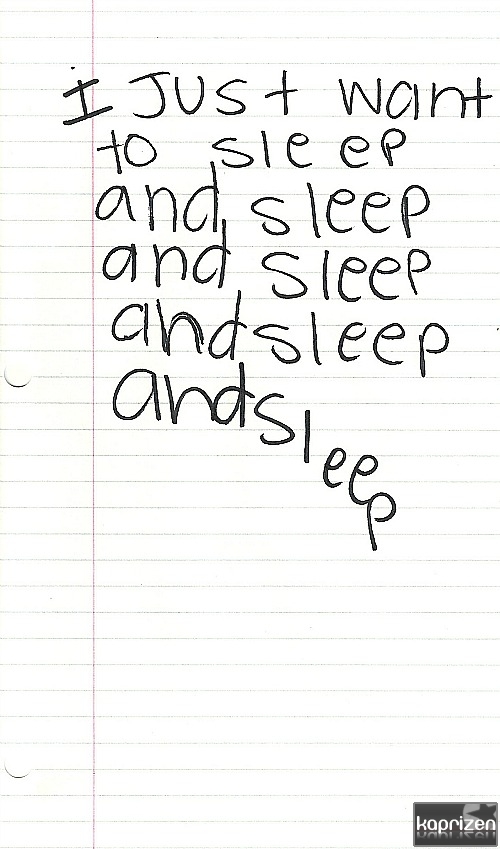 I JUST want
to sleep
and sleep
and sleep
and sleep
and sleep
kaprizen